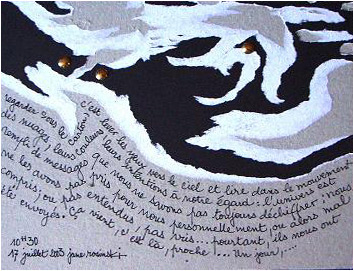 regarder sous le carton?
c'est lever les yeux vers le ciel et lire dans le mouvement
des nuages, leurs couleurs, leurs intentions à notre égard : l'univers est
rempli de messages que nous ne savons pas toujours déchiffrer. nous
ne les avons pas pris pour nous personnellement, ou alors mal
compris, ou pas entendus, pas vus... pourtant, ils nous ont
été envoyés. ça vient, c'est là, proche !... Un jour, ...
10H30
17 juillet 2003